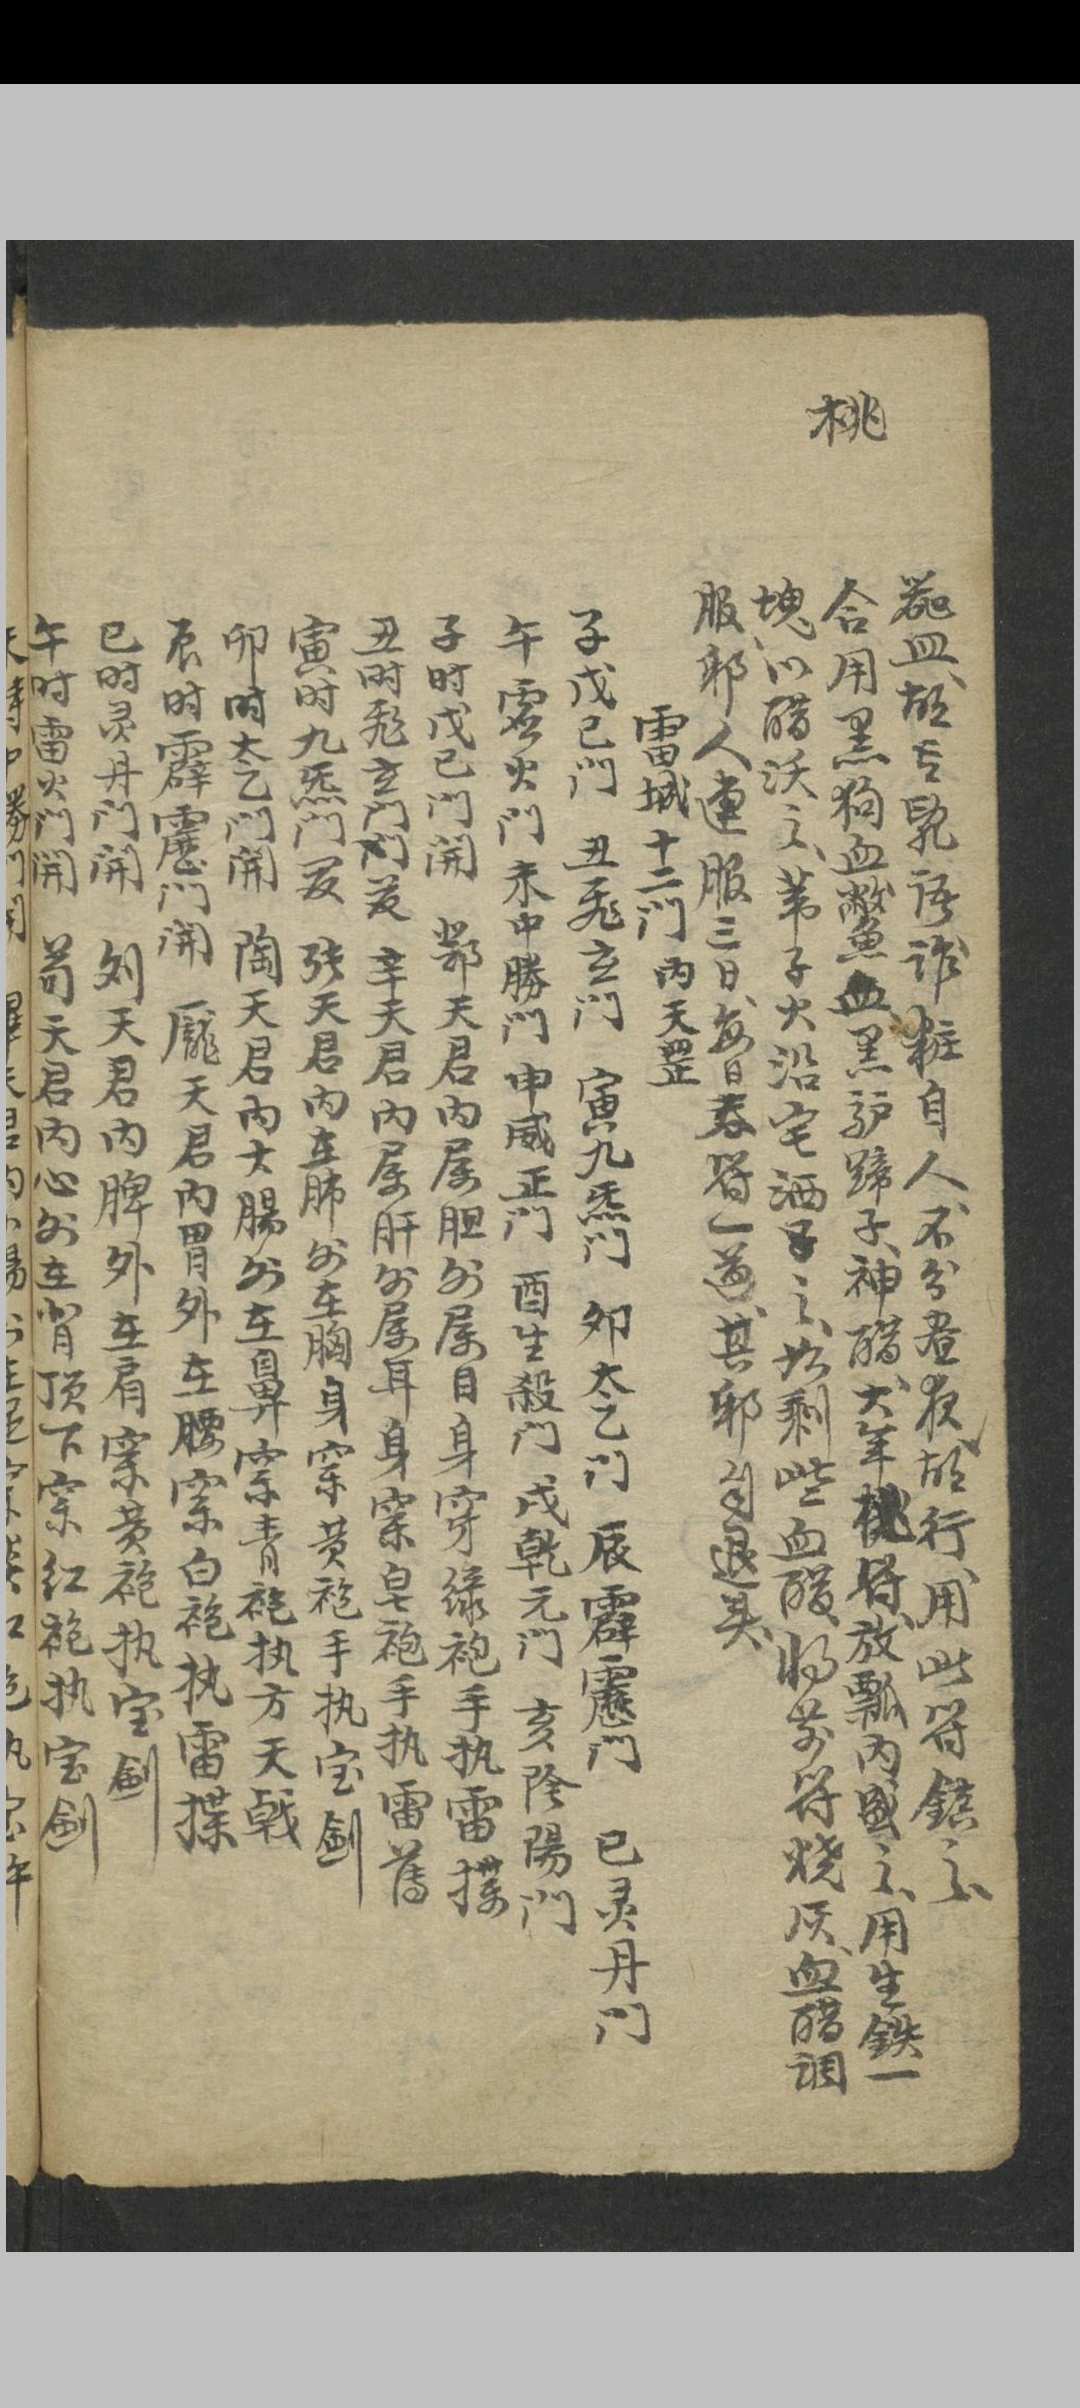 桃
器皿、胡言乱语、诈粧自人、不分昼夜胡行、用此符鎮之、
合用黑狗血、鱉血、黑驴蹄子、神醋、大年桃符、放瓢内盛之、用生鉄一
塊、以醋沃之、苇子火沿宅洒了之、比剩些血醋、将前符烧灰、血醋調
服、邪人連服三日、每日吞符一道、其邪自退矣、
雷城十二门 内天罡
子戊己门 丑飛玄门 寅九炁门 卯太乙门 辰霹靂门 巳灵丹门
午雷火门 未中勝门 申威正门 酉生殺门 戌乾元门 亥陰陽门
子时戊己门開 鄧天君内属胆外属目身穿綠袍手执雷
丑时飛玄门 辛天君内属肝外属耳身穿皂袍手执雷
寅时九炁门 张天君内在肺外在胸身穿黄袍手执宝劍
卯时太乙门開 陶天君内大腸外在鼻穿青袍执方天戟
辰时霹靂门開 龐天君内胃外在腰穿白袍执雷
巳时灵丹门開 刘天君内脾外在肩穿黄袍执宝劍
午时雷火门開 苟天君内心外在背顶下穿红袍执宝劍